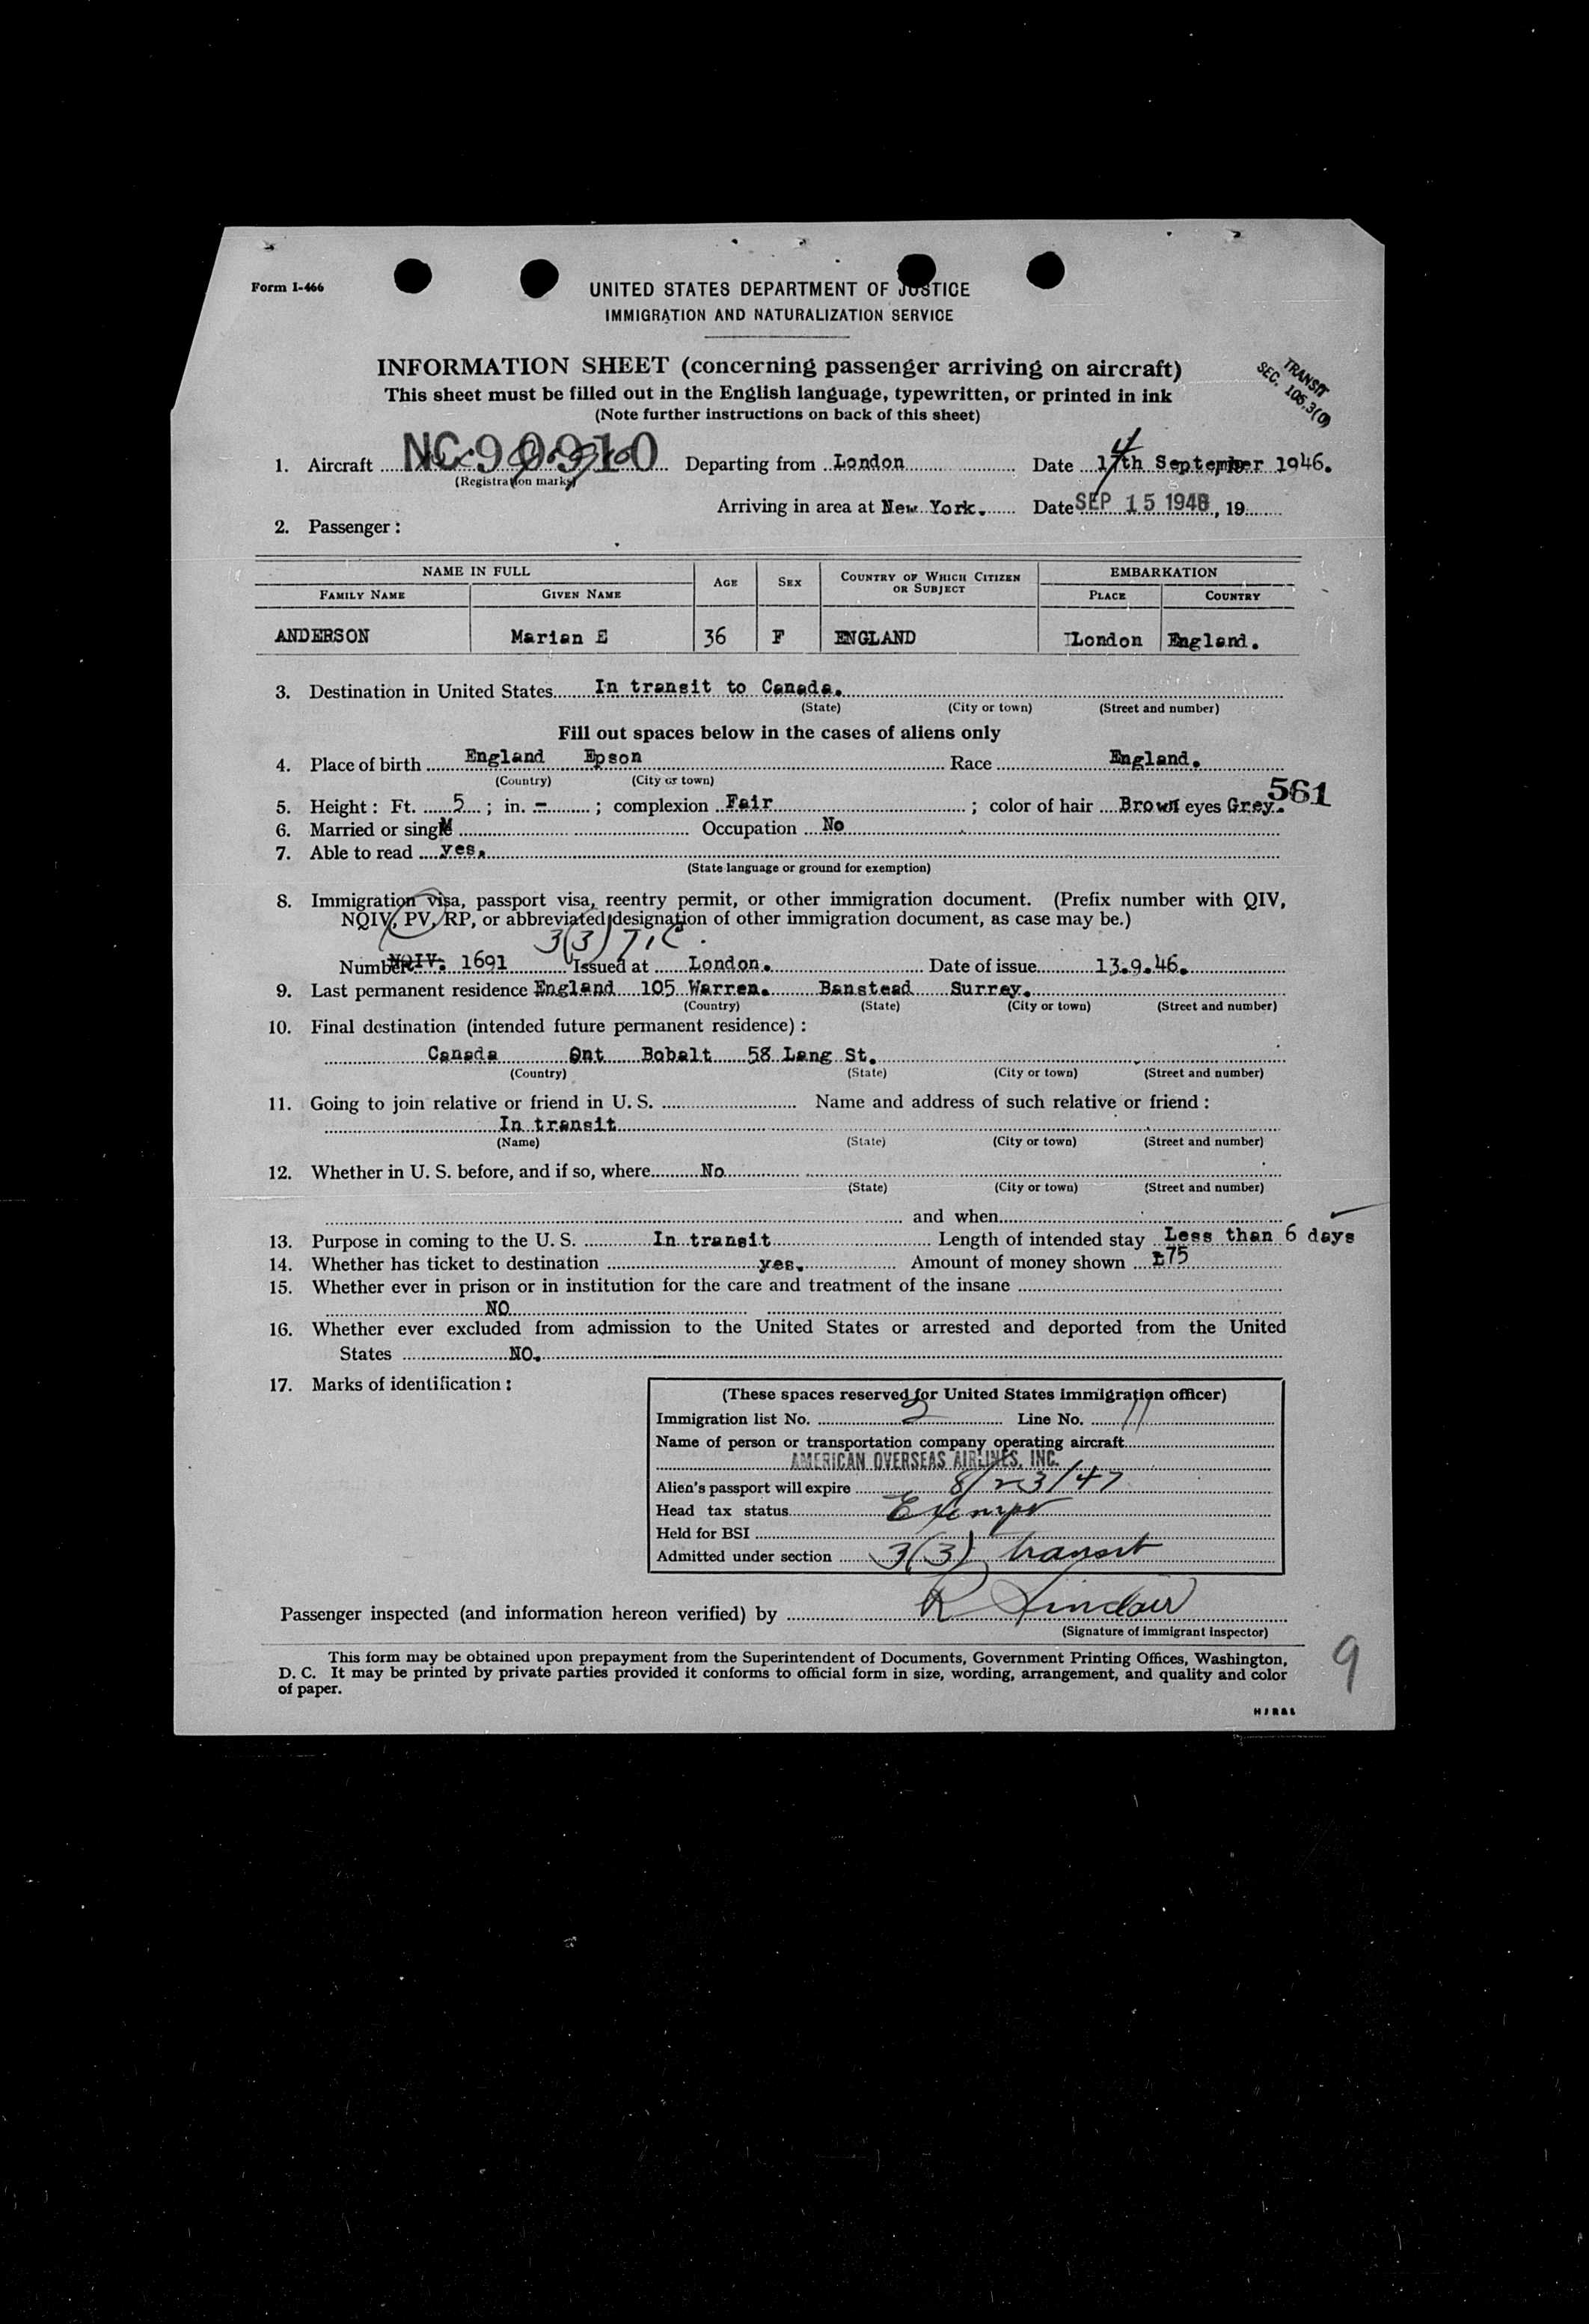 Form I-466
UNITED STATES DEPARTMENT OF JUSTICE
IMMIGRATION AND NATURALIZATION SERVICE
INFORMATION SHEET (concerning passenger arriving on aircraft)
This sheet must be filled out in the English language, typewritten, or printed in ink
(Note further instructions on back of this sheet)
TRANSIT
SEC. 106.3(0)
1. Aircraft NC 90910 Departing from London Date 14th September 1946.
(Registration marks)
Arriving in area at New York. Date SEP 15 1946, 19
2. Passenger:
NAME IN FULL AGE SEX COUNTRY OF WHICH CITIZEN OR SUBJECT EMBARKATION
FAMILY NAME GIVEN NAME PLACE COUNTRY
ANDERSON Marian E 36 F ENGLAND London England.
3. Destination in United States In transit to Canada.
(State) (City or town) (Street and number)
Fill out spaces below in the cases of aliens only
4. Place of birth England Epson Race England.
(Country) (City or town)
561
5. Height: Ft. 5; in. -; complexion Fair; color of hair Brown eyes Grey.
6. Married or single M Occupation No
7. Able to read yes.
(State language or ground for exemption)
8. Immigration visa, passport visa, reentry permit, or other immigration document. (Prefix number with QIV,
NQIV, PV, RP, or abbreviated designation of other immigration document, as case may be.)
3(3)
Number NQIV: 1691 Issued at London. Date of issue 13.9.46.
9. Last permanent residence England 105 Warren. Banstead Surrey.
(Country) (State) (City or town) (Street and number)
10. Final destination (intended future permanent residence):
Canada Ont Bobalt 58 Lang St.
(Country) (State) (City or town) (Street and number)
11. Going to join relative or friend in U. S. Name and address of such relative or friend:
In transit
(Name) (State) (City or town) (Street and number)
12. Whether in U. S. before, and if so, where No
(State) (City or town) (Street and number)
and when
13. Purpose in coming to the U. S. In transit Length of intended stay Less than 6 days
14. Whether has ticket to destination yes. Amount of money shown £75
15. Whether ever in prison or in institution for the care and treatment of the insane
NO
16. Whether ever excluded from admission to the United States or arrested and deported from the United
States NO.
17. Marks of identification:
(These spaces reserved for United States immigration officer)
Immigration list No. 2 Line No. 11
Name of person or transportation company operating aircraft
AMERICAN OVERSEAS AIRLINES, INC.
Alien's passport will expire 8/23/47
Head tax status Exempt
Held for BSI
Admitted under section 3(3) transit
Passenger inspected (and information hereon verified) by R Sinclair
(Signature of immigrant inspector)
This form may be obtained upon prepayment from the Superintendent of Documents, Government Printing Offices, Washington,
D. C. It may be printed by private parties provided it conforms to official form in size, wording, arrangement, and quality and color
of paper.
9